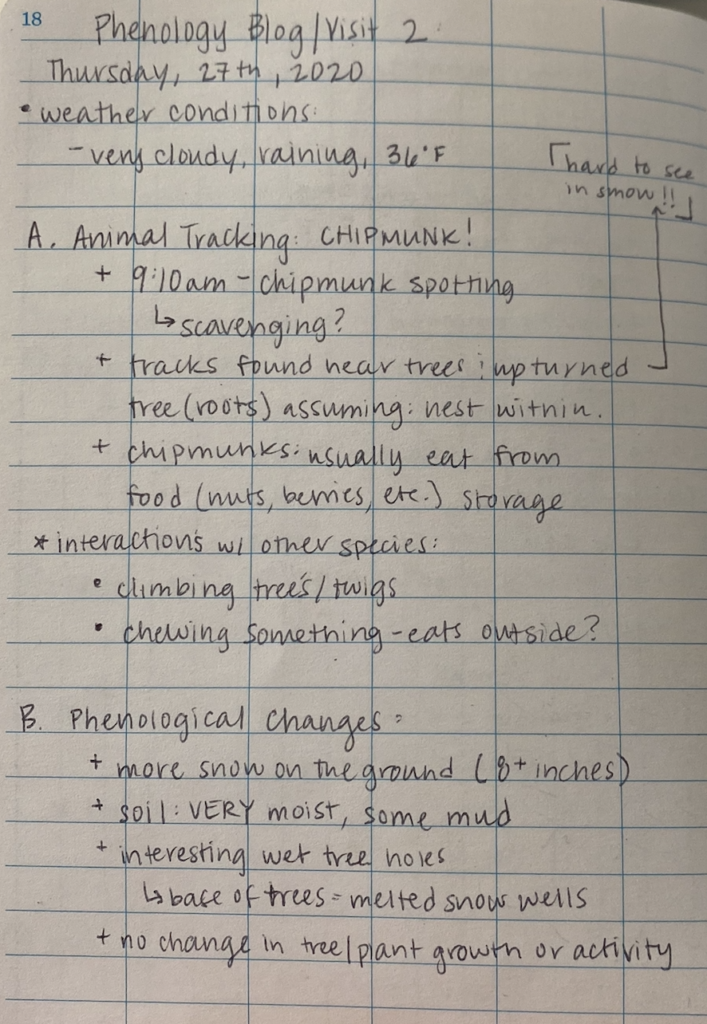 18
Phenology Blog/Visit 2
Thursday, 27th, 2020
• weather conditions:
- very cloudy, raining, 36°F
hard to see
in snow!!
A. Animal Tracking: CHIPMUNK!
+ 9:10am - chipmunk spotting
↳ scavenging?
+ tracks found near trees; upturned
tree (roots) assuming: nest within.
+ chipmunks: usually eat from
food (nuts, berries, etc.) storage
* interactions w/ other species:
• climbing trees/twigs
• chewing something - eats outside?
B. Phenological Changes:
+ more snow on the ground (8+ inches)
+ soil: VERY moist, some mud
+ interesting wet tree holes
↳ base of trees = melted snow wells
+ no change in tree/plant growth or activity